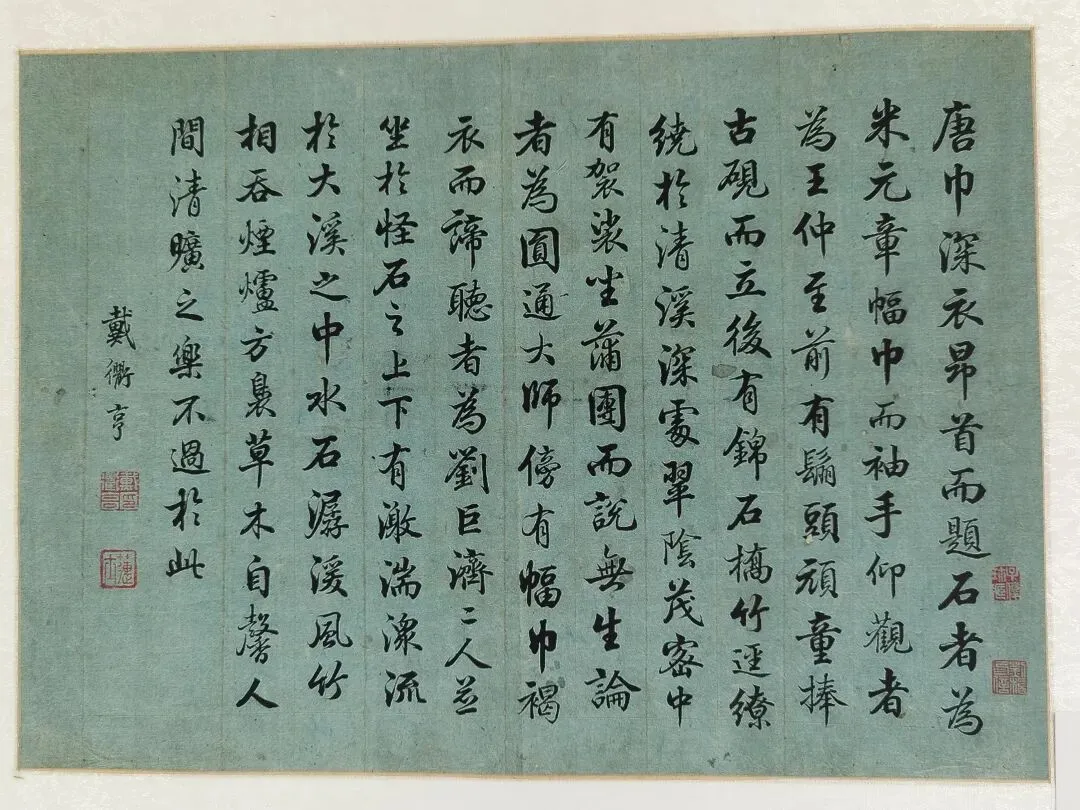 唐巾深衣昂首而題石者為
米元章幅巾而袖手仰觀者
為王仲至前有鬅頭頑童捧
古硯而立後有錦石橋竹逕繚
繞於清溪深處翠陰茂密中
有袈裟坐蒲團而說無生論
者為圓通大師傍有幅巾褐
衣而諦聽者為劉巨濟二人並
坐於怪石之上下有激湍潨流
於大溪之中水石潺湲風竹
相吞煙爐方裊草木自馨人
間清曠之樂不過於此
戴衢亨